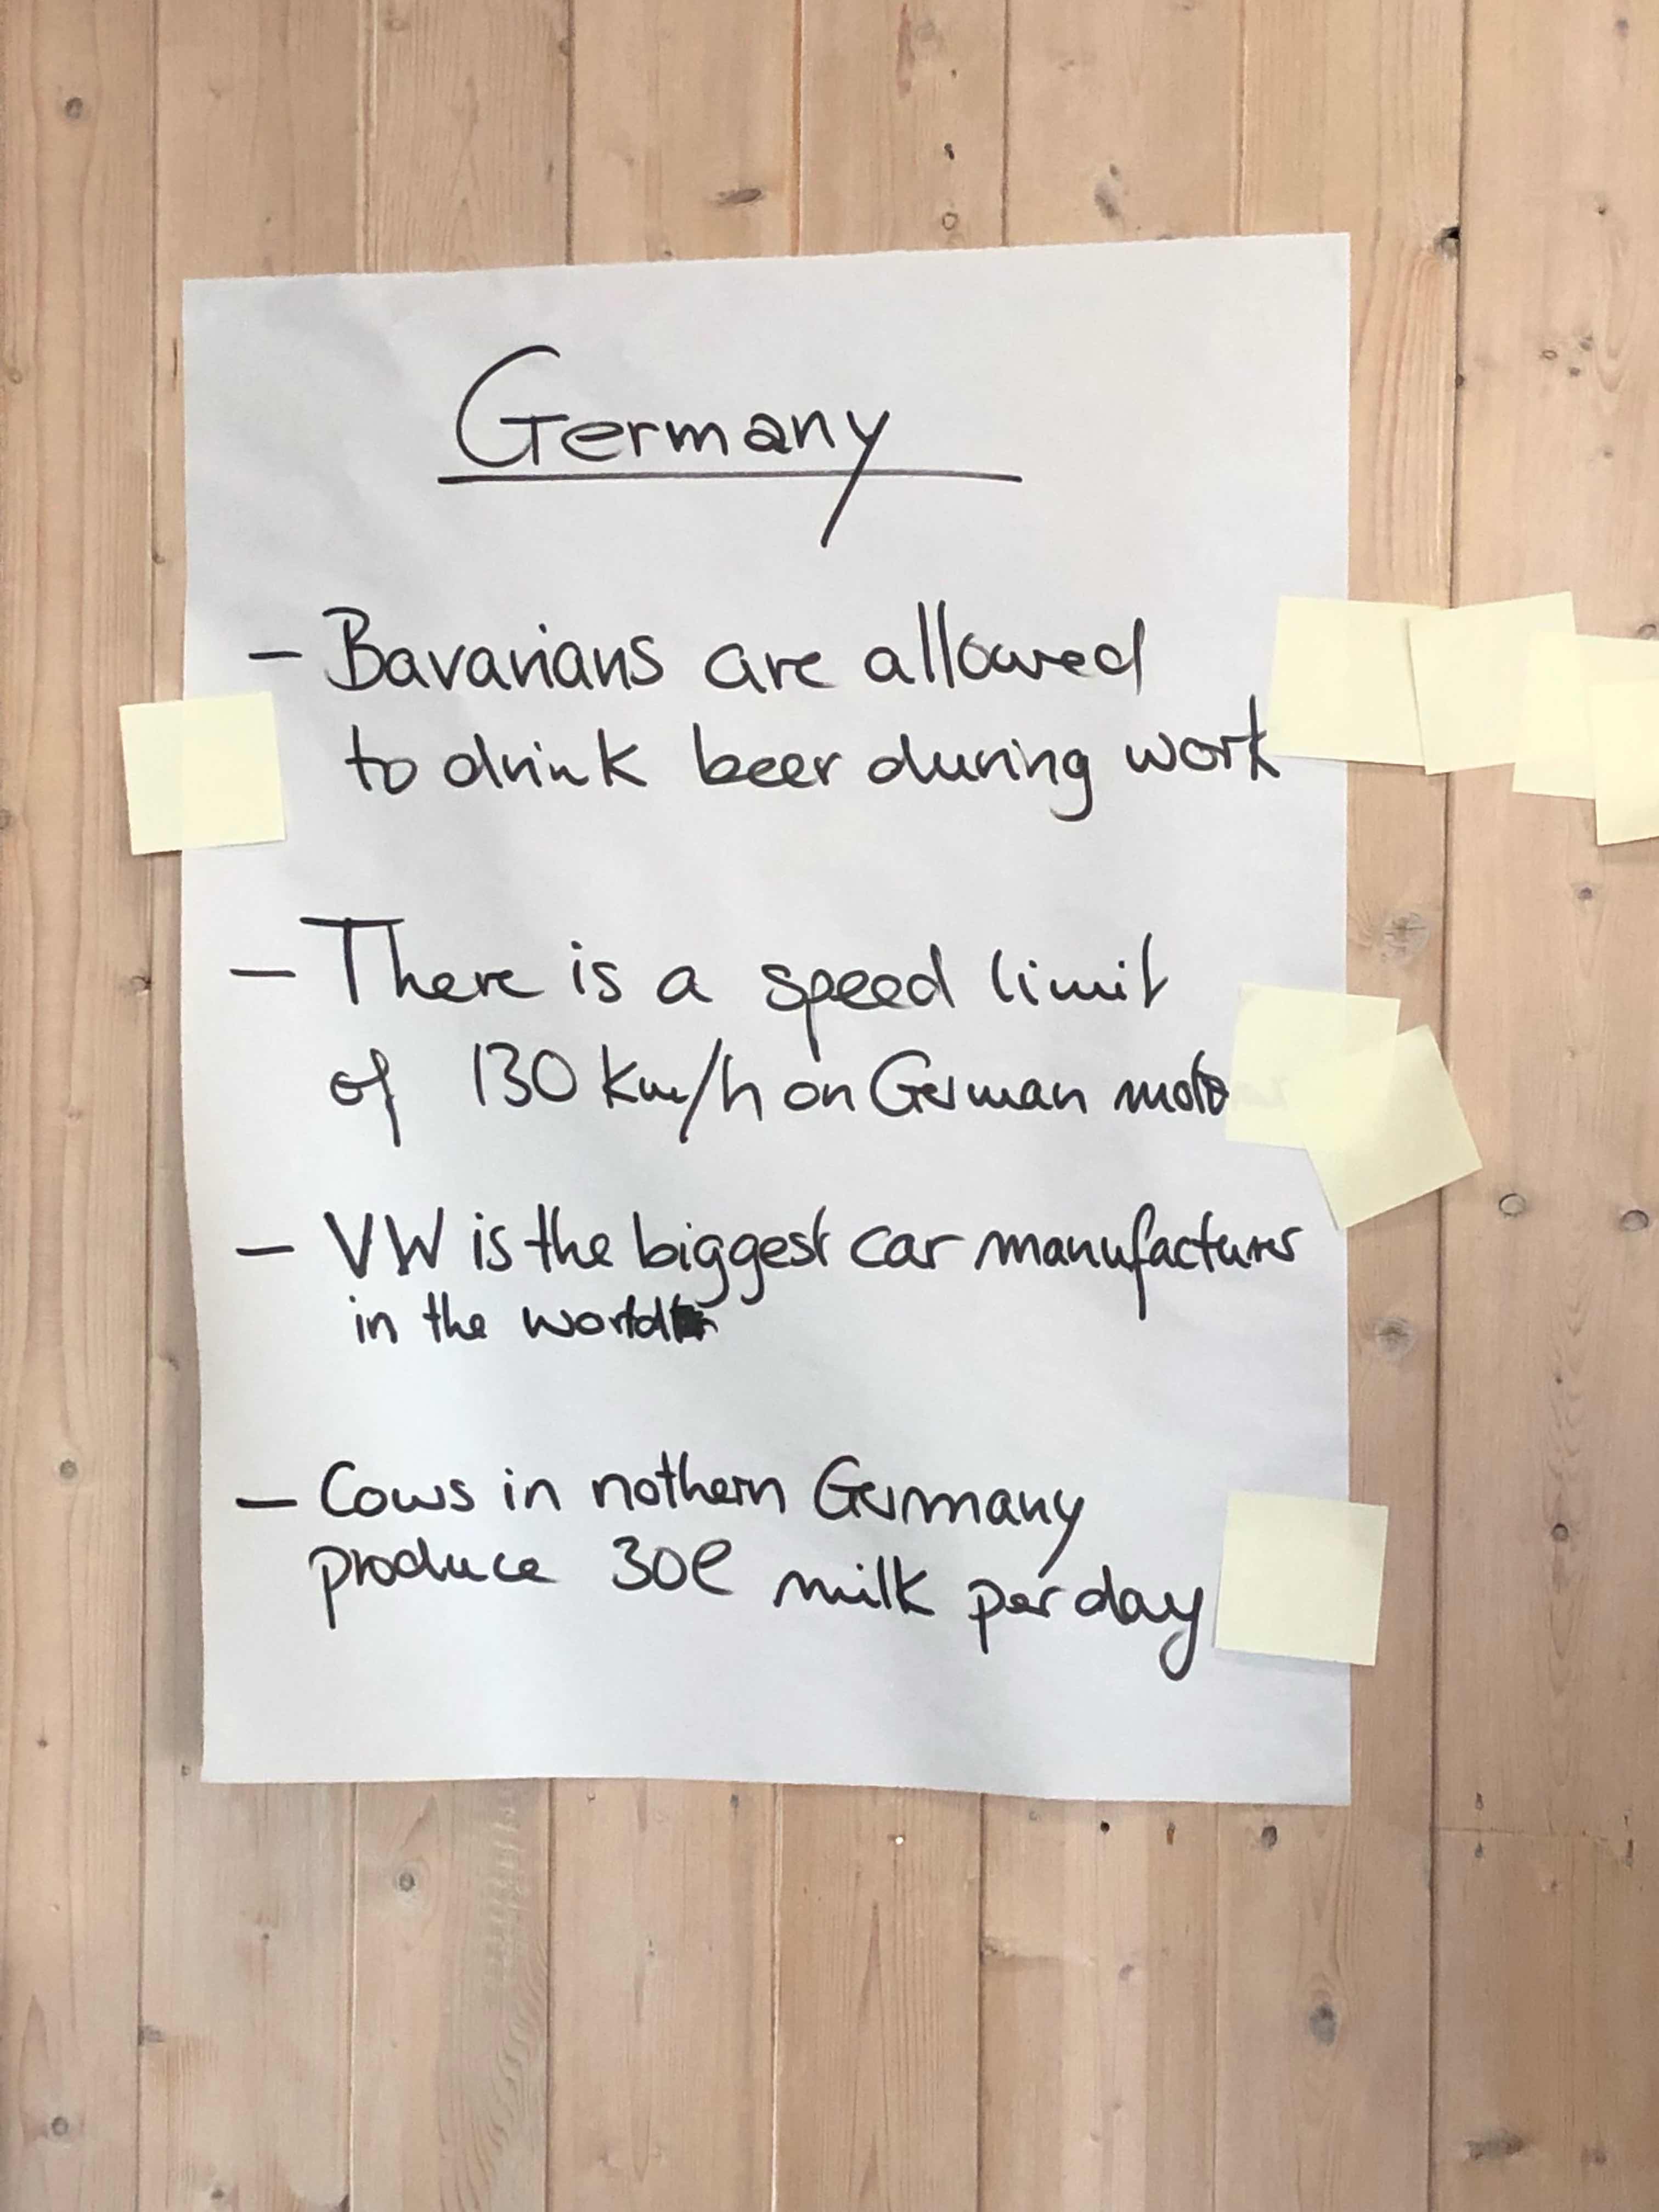 Germany
- Bavarians are allowed
to drink beer during work
- There is a speed limit
of 130 km/h on German
- VW is the biggest car manufacturer
in the world
- Cows in nothern Germany
produce 30l milk per day